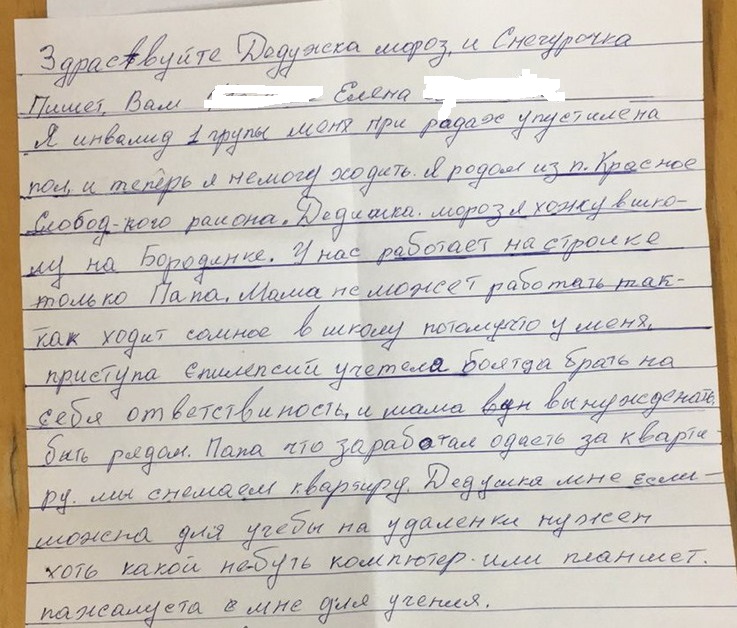 Здраствуйте Дедужка мороз, и Снегурочка
Пишет, Вам Елена
Я инвалид 1 групы меня при радах упустилена
пол, и теперь я немогу ходить. Я родом из п. Красное
Слобод-кого раиона. Дедушка. мороз я хожу в шко-
лу на Бородинке. У нас работает на строике
только Папа. Мама не может работать так-
как ходит сомное в школу потомучто у меня,
приступа Епилепсий учетела боятда брать на
себя ответствиность, и мама вынужденать
быть рядом. Папа что заработал одаеть за кварти-
ру. мы снемаем квартиру. Дедушка мне если-
можна для учебы на удаленки нужен
хоть какой небуть компютер. или планшет.
пажалуста мне для учения.